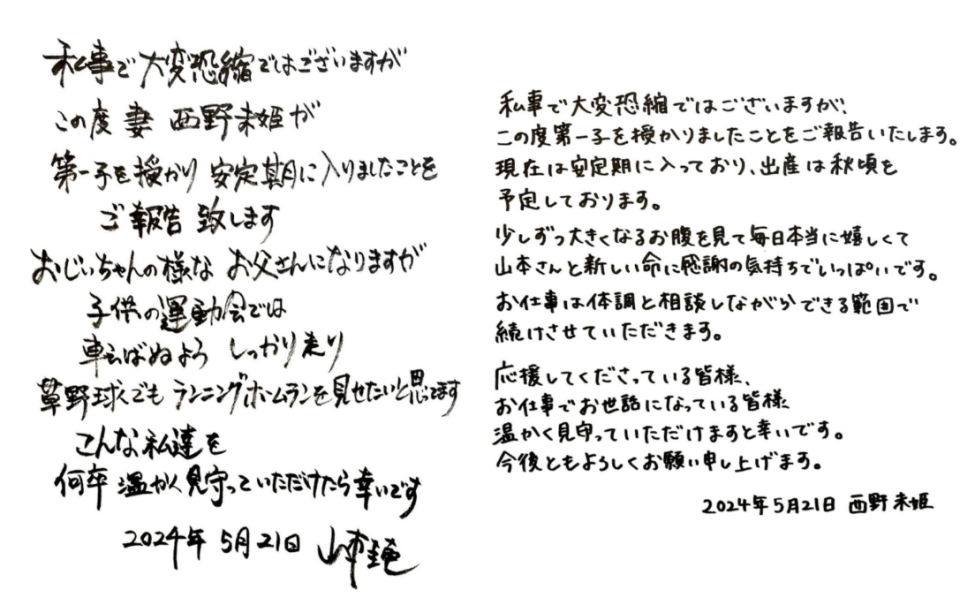 私事で大変恐縮ではございますが
この度 妻 西野未姫が
第一子を授かり 安定期に入りましたことを
ご報告 致します
おじいちゃんの様な お父さんになりますが
子供の運動会では
転ばぬよう しっかり走り
草野球でも ランニングホームランを見せたいと思ってます
こんな私達を
何卒 温かく見守っていただけたら幸いです
2024年 5月21日 山本圭壱
私事で大変恐縮ではございますが、
この度第一子を授かりましたことをご報告いたします。
現在は安定期に入っており、出産は秋頃を
予定しております。
少しずつ大きくなるお腹を見て毎日本当に嬉しくて
山本さんと新しい命に感謝の気持ちでいっぱいです。
お仕事は体調と相談しながらできる範囲で
続けさせていただきます。
応援してくださっている皆様、
お仕事でお世話になっている皆様、
温かく見守っていただけますと幸いです。
今後ともよろしくお願い申し上げます。
2024年5月21日 西野未姫